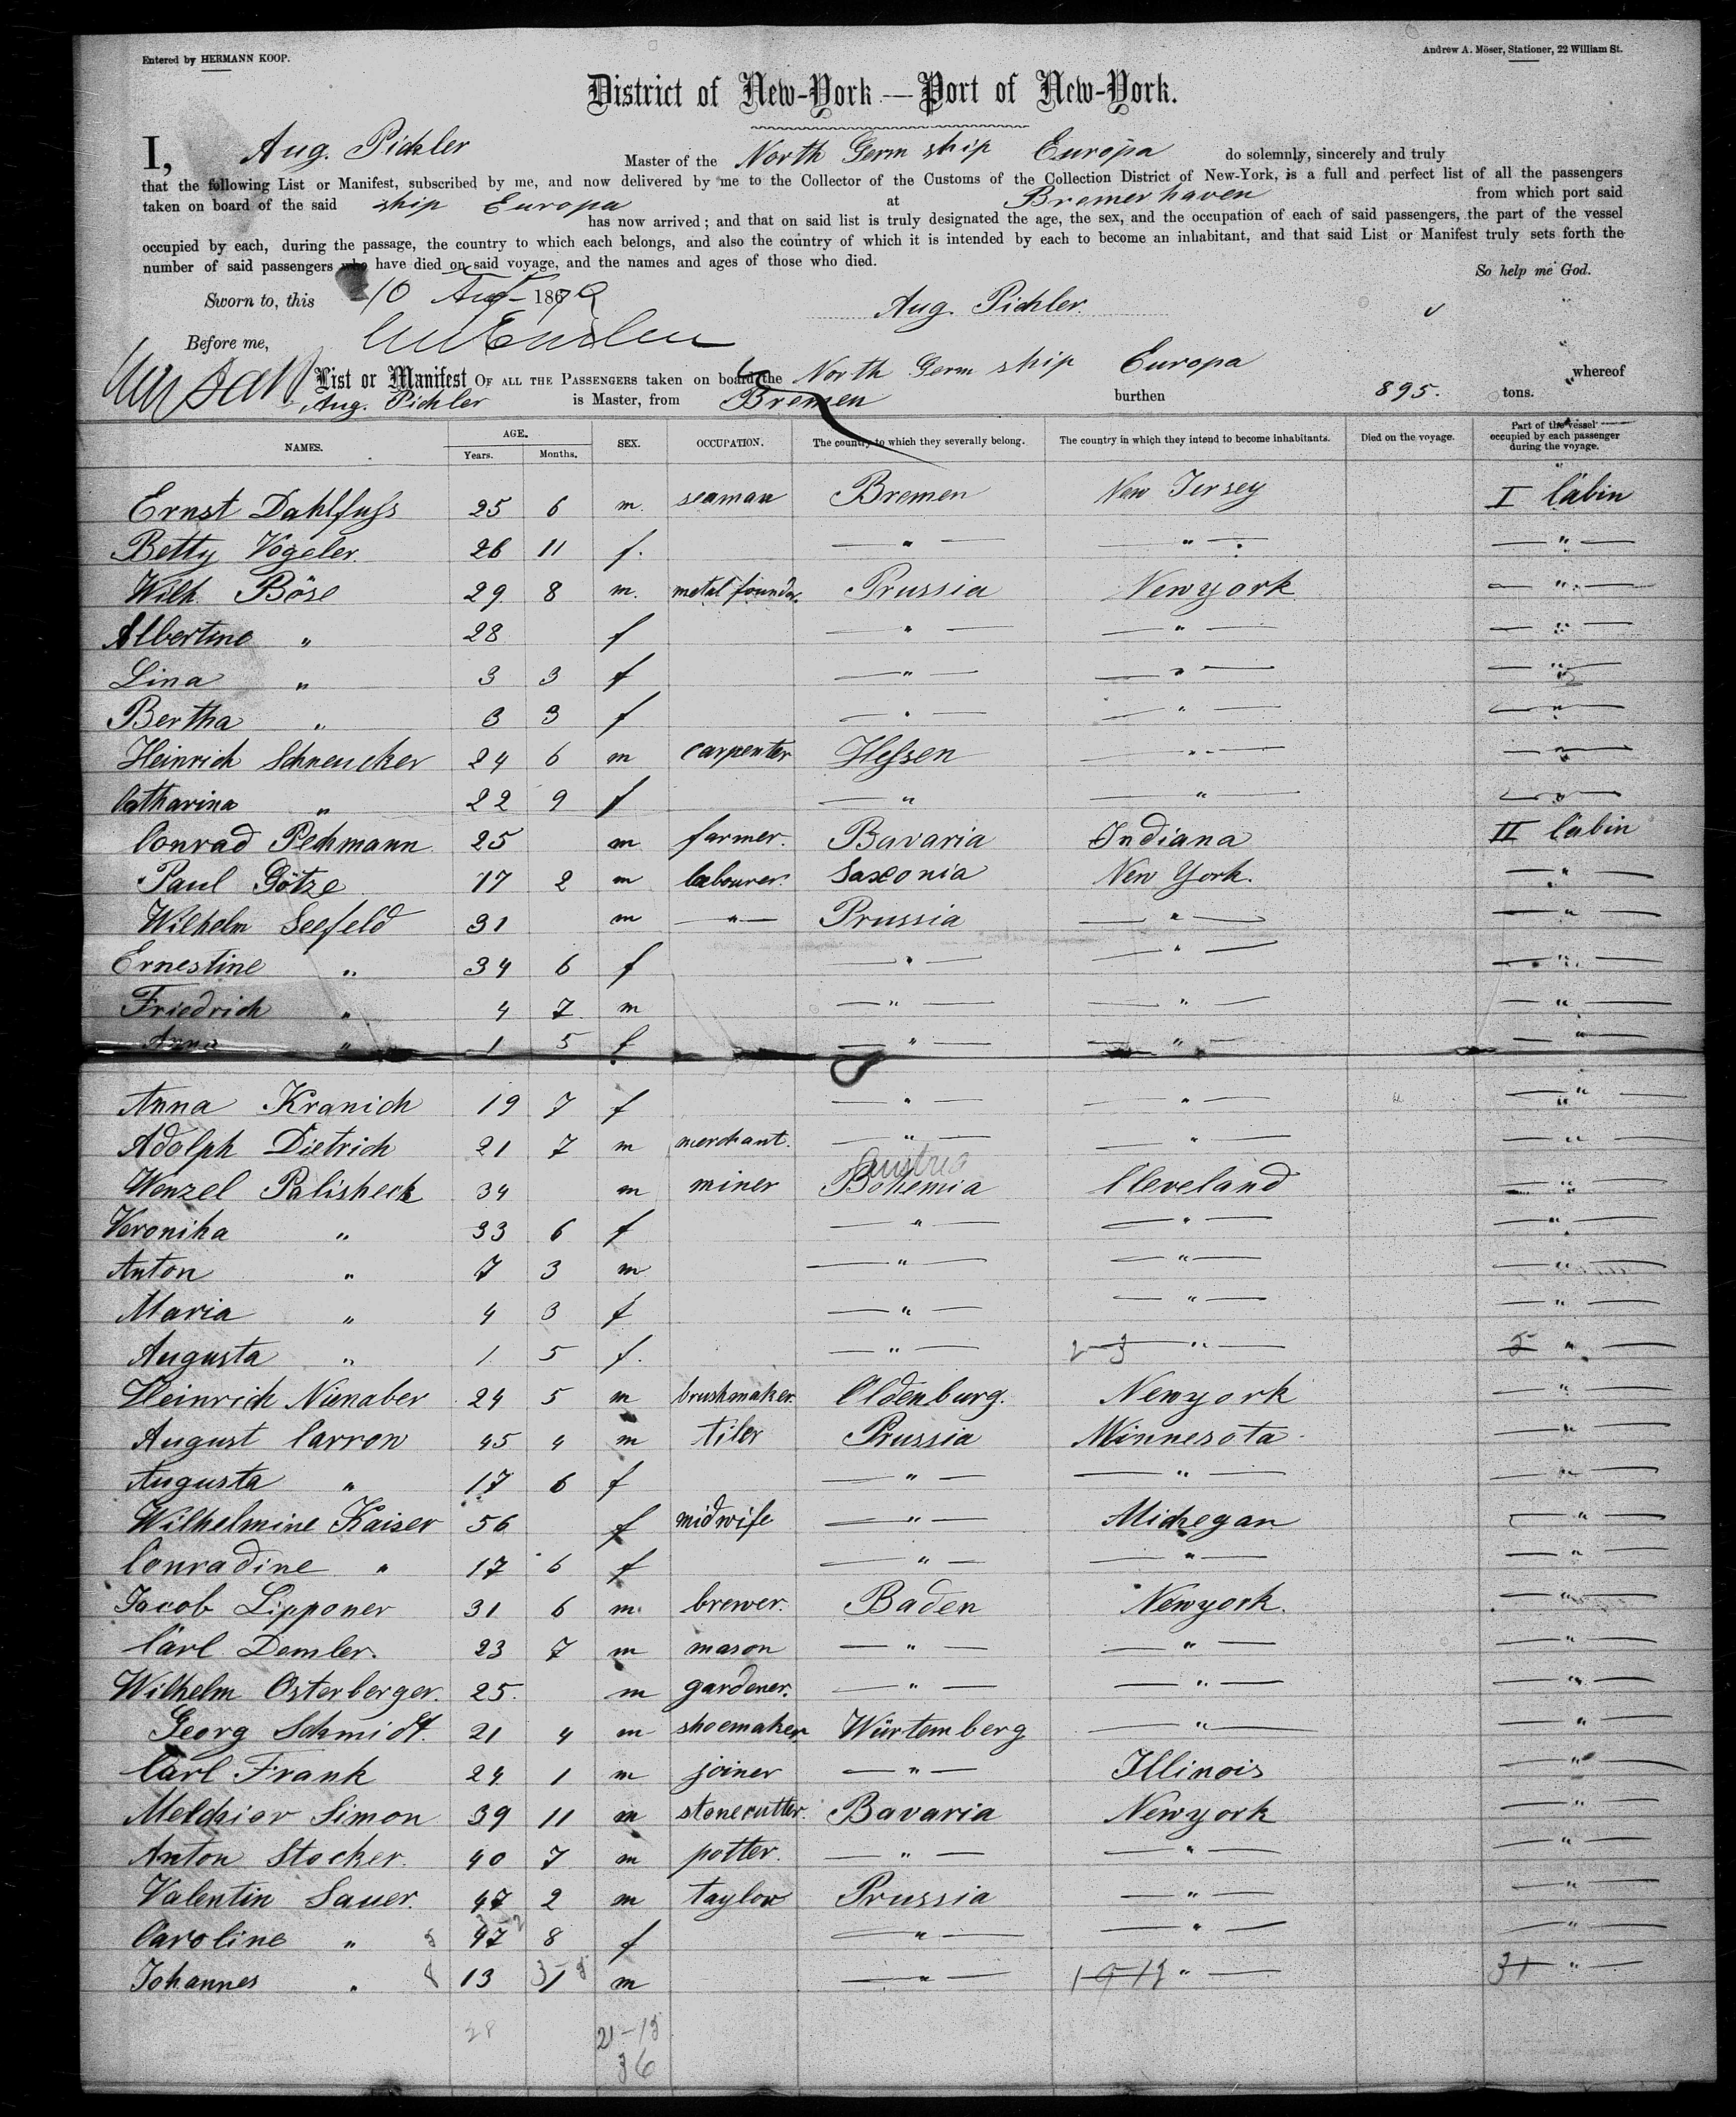 Entered by HERMANN KOOP.
Andrew A. Möser, Stationer, 22 William St.
District of New-York — Port of New-York.
I, Aug. Pichler Master of the North Germ ship Europa do solemnly, sincerely and truly
that the following List or Manifest, subscribed by me, and now delivered by me to the Collector of the Customs of the Collection District of New-York, is a full and perfect list of all the passengers
taken on board of the said ship Europa at Bremerhaven from which port said
has now arrived; and that on said list is truly designated the age, the sex, and the occupation of each of said passengers, the part of the vessel
occupied by each, during the passage, the country to which each belongs, and also the country of which it is intended by each to become an inhabitant, and that said List or Manifest truly sets forth the
number of said passengers who have died on said voyage, and the names and ages of those who died.
So help me God.
Sworn to, this 10 Aug 1869
Aug. Pichler.
Before me,
List or Manifest OF ALL THE PASSENGERS taken on board the North Germ ship Europa whereof
Aug. Pichler is Master, from Bremen burthen 895. tons.
NAMES. AGE. Years. Months. SEX. OCCUPATION. The country to which they severally belong. The country in which they intend to become inhabitants. Died on the voyage. Part of the vessel occupied by each passenger during the voyage.
Ernst Dahlfuss 25 6 m. seaman Bremen New Jersey I Cabin
Betty Vogeler. 26 11 f. — " — — " — — " —
Wilh. Böse 29 8 m. metal founder Prussia Newyork — " —
Albertine " 28 f — " — — " — — " —
Lina " 3 3 f — " — — " — — " —
Bertha " 3 3 f — " — — " — — " —
Heinrich Schneucker 24 6 m carpenter Hessen — " — — " —
Catharina " 22 9 f — " — " — — " —
Conrad Pechmann 25 m farmer. Bavaria Indiana II Cabin
Paul Götze 17 2 m labourer. Saxonia New York. — " —
Wilhelm Seefeld 31 m — " — Prussia — " — — " —
Ernestine " 34 6 f — " — — " — — " —
Friedrich " 4 7 m — " — — " — — " —
Anna " 1 5 f — " — — " — — " —
Anna Kranich 19 7 f — " — — " — — " —
Adolph Dietrich 21 7 m merchant. — " — — " — — " —
Austria
Wenzel Palisheck 34 m miner Bohemia Cleveland — " —
Veronika " 33 6 f — " — — " — — " —
Anton " 7 3 m — " — — " — — " —
Maria " 4 3 f — " — — " — — " —
Augusta " 1 5 f. — " — 2 3 — " — 5 " —
Heinrich Nienaber 24 5 m brushmaker. Oldenburg. Newyork — " —
August Carron 45 4 m tiler Prussia Minnesota — " —
Augusta " 17 6 f — " — — " — — " —
Wilhelmine Kaiser 56 f midwife — " — Michegan — " —
Conradine " 17 6 f — " — — " — — " —
Jacob Lipponer 31 6 m. brewer. Baden Newyork. — " —
Carl Demler. 23 7 m mason — " — — " — — " —
Wilhelm Osterberger. 25. m gardener. — " — — " — — " —
Georg Schmidt. 21 4 m shoemaker Würtemberg — " — — " —
Carl Frank 24 1 m joiner — " — Illinois — " —
Melchior Simon 39 11 m stonecutter. Bavaria Newyork — " —
Anton Stocker. 40 7 m potter. — " — — " — — " —
Valentin Sauer. 47 2 m taylor Prussia — " — — " —
Caroline " 47 8 f — " — — " — — " —
Johannes " 13 1 m — " — " — 31 " —
28 21-15
36